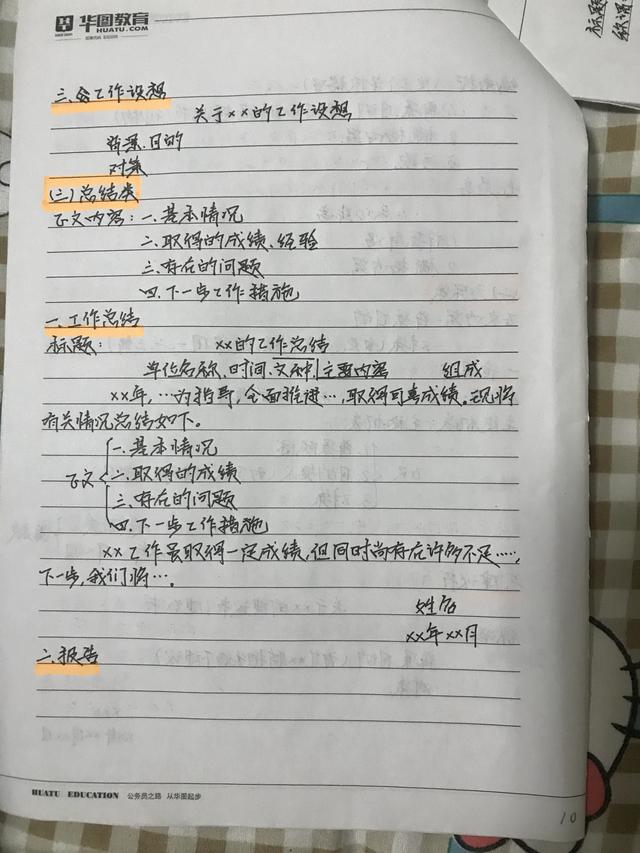 华图教育
HUATU.COM
三、工作设想
关于xx的工作设想
背景、目的
对策
(三)总结类
正文内容:一、基本情况
二、取得的成绩、经验
三、存在的问题
四、下一步工作措施
一、工作总结
标题: xx的工作总结
单位名称、时间、文种、主要内容 组成
xx年,…为指导,全面推进…,取得可喜成绩。现将
有关情况总结如下。
一、基本情况
正文 二、取得的成绩
三、存在的问题
四、下一步工作措施
xx工作虽取得一定成绩,但同时尚存在许多不足……,
下一步,我们将…。
姓名
xx年xx月
二、报告
HUATU EDUCATION 公务员之路 从华图起步
10
标题